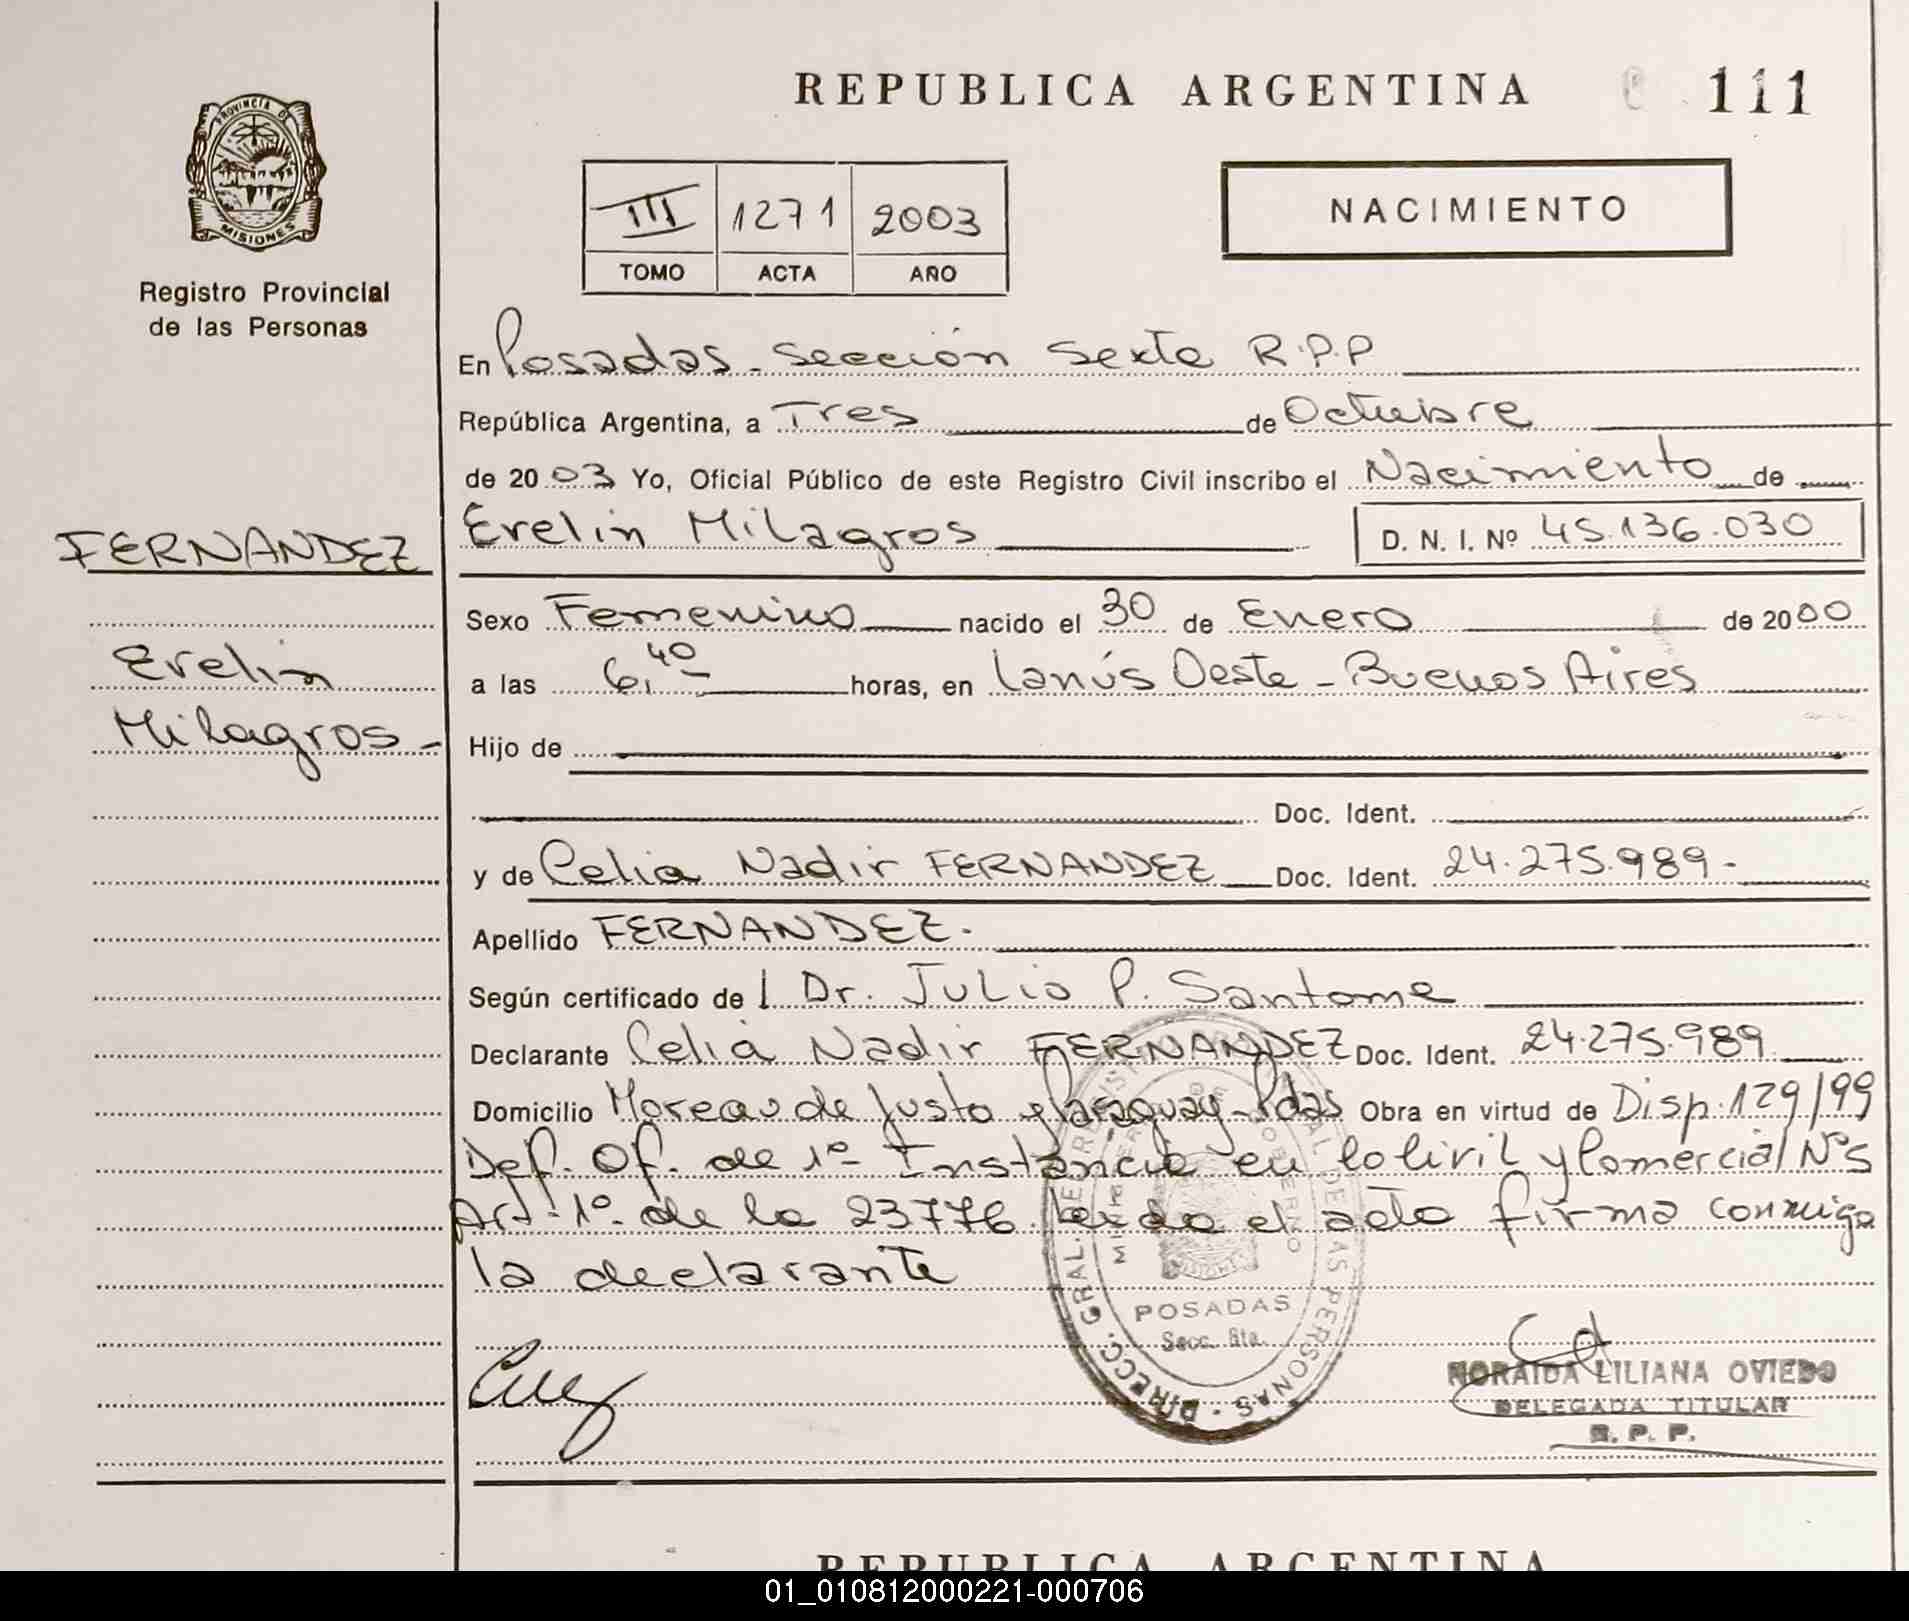 REPUBLICA ARGENTINA 111
PROVINCIA DE
MISIONES
Registro Provincial
de las Personas
III 1271 2003
TOMO ACTA AÑO
NACIMIENTO
En Posadas - Sección Sexta R.P.P
República Argentina, a Tres de Octubre
de 2003 Yo, Oficial Público de este Registro Civil inscribo el Nacimiento de
FERNANDEZ
Evelin Milagros
D. N. I. Nº 45.136.030
Sexo Femenino nacido el 30 de Enero de 2000
Evelin
a las 6,40 horas, en Lanús Oeste - Buenos Aires
Milagros -
Hijo de
Doc. Ident.
y de Celia Nadir FERNANDEZ Doc. Ident. 24.275.989 -
Apellido FERNANDEZ.
Según certificado de l Dr. Julio P. Santome
Declarante Celia Nadir FERNANDEZ Doc. Ident. 24.275.989
Domicilio Moreau de Justo y Paraguay - Pdas Obra en virtud de Disp. 129/99
Def. Of. de 1º Instancia en lo Civil y Comercial Nº 5
Art. 1º de la 23776. Leida el acta firma conmigo
la declarante
DIRECC. GRAL. DE REGISTRO PROVINCIAL DE LAS PERSONAS
POSADAS
Secc. 6ta.
NORAIDA LILIANA OVIEDO
DELEGADA TITULAR
R. P. P.
REPUBLICA ARGENTINA
01_010812000221-000706